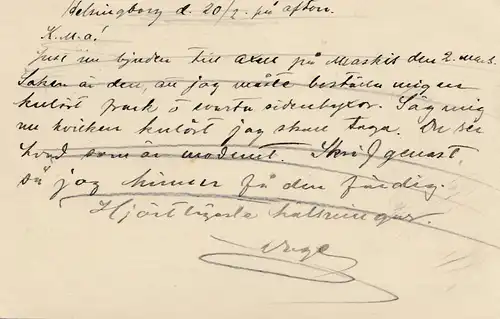 Helsingborg d. 20/2. på afton.
K. M. a!
Just nu bjuden till på Maskis den 2. mars.
Saken är den, att jag måste beställa mig en
kulört frack o svarta sidenbyxor. Säg mig
nu hvilken kulört jag skall taga. Du ser
hvad som är modernt. Skrif genast,
så jag hinner få den färdig.
Hjärtligaste hälsningar.